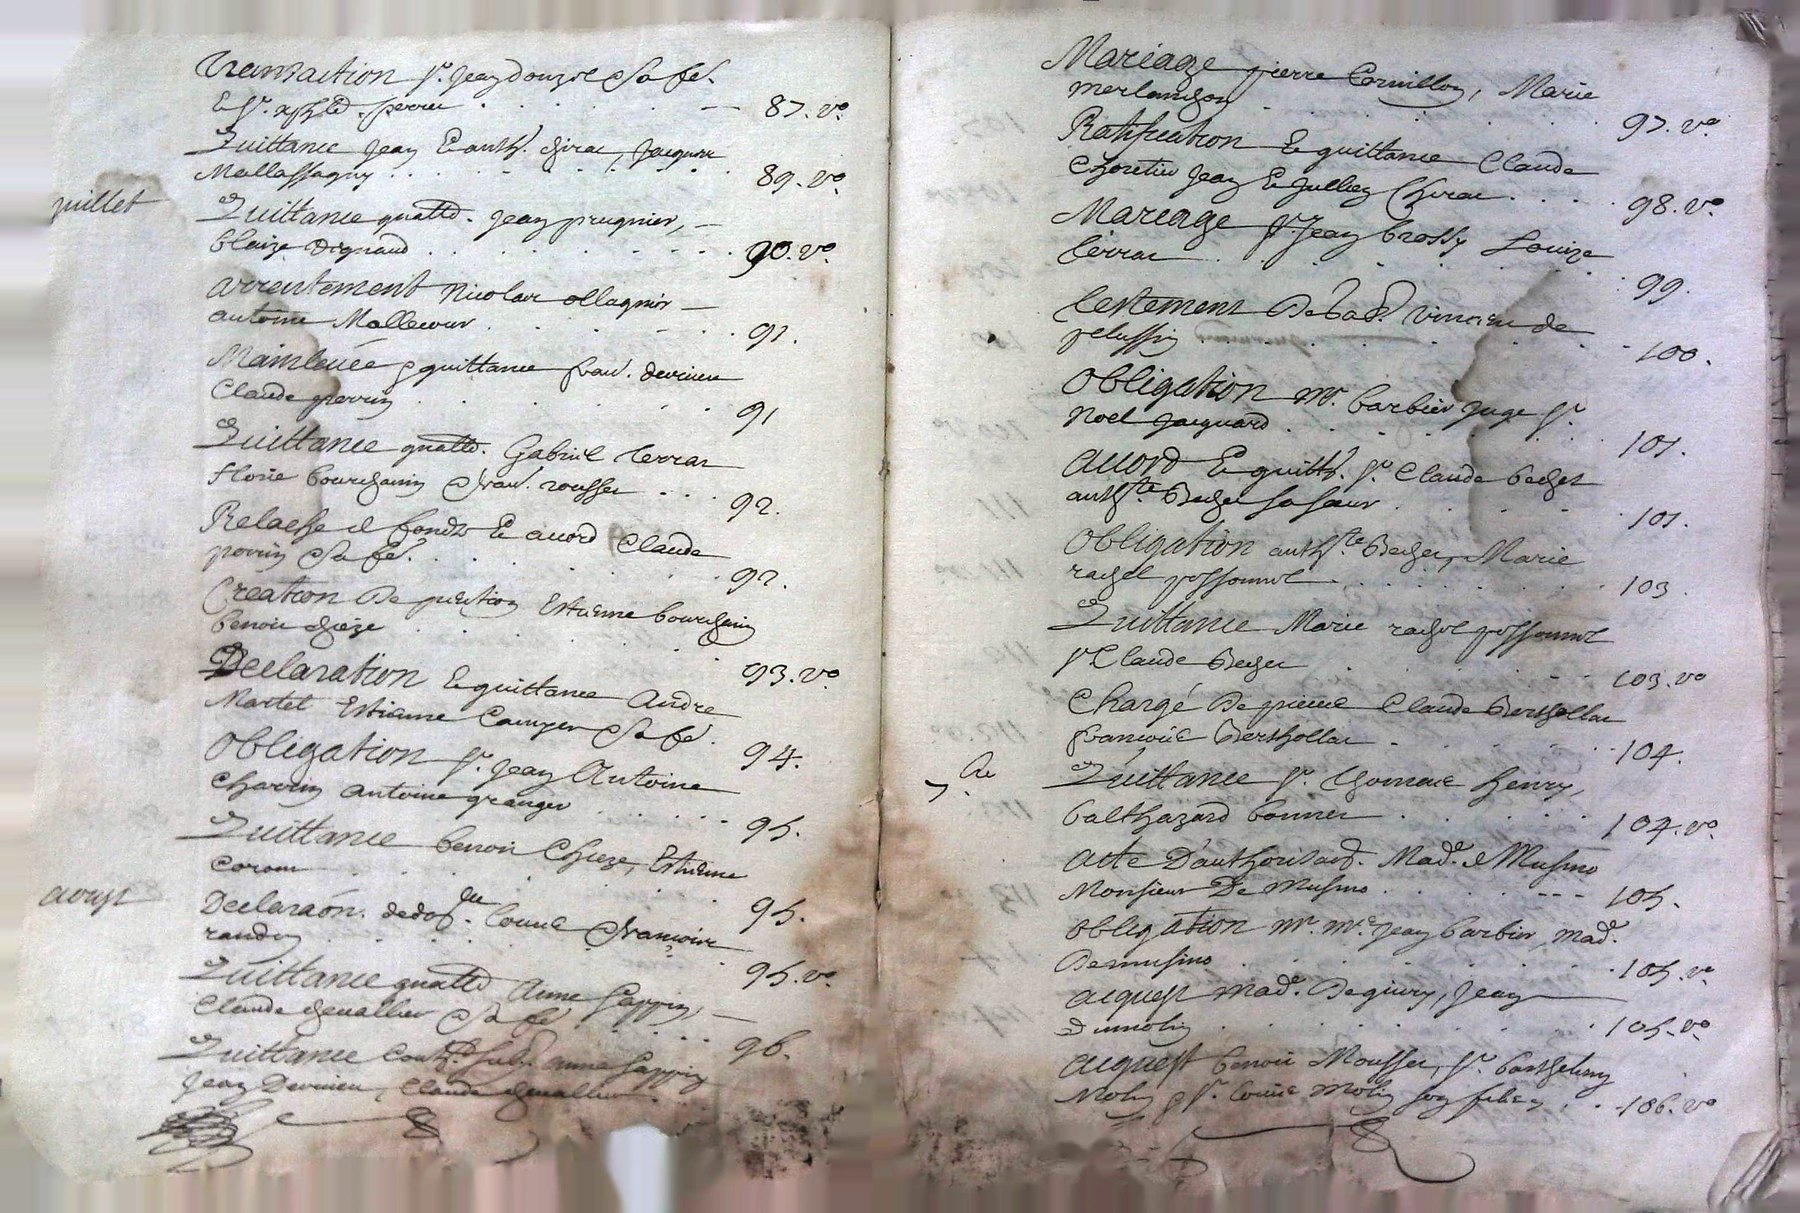 Transaction sr. Jean Sa fe.
Et sr. 87. vo.
Quittance Jean Et anth. Chirac, Jacques
Mallassagny 89. vo.
juillet
Quittance quattd. Jean prugnier,
blaize Dignaud 90. vo.
arrentement Nicolas ollagnier
antoine Mallecour 91.
Mainlevée & quittance fran. dervieu
Claude perrin 91
Quittance quattd. Gabriel Terras
florie bourchanin fran. rousset 92.
Relaché de fondz Et acord Claude
perrin Sa fe. 92.
Creation De pention Estienne bourchanin
benoit chieze 93. vo
Declaration Et quittance Andre
Martel Estienne Sa fe. 94.
Obligation sr. Jean Antoine
Charrin antoine granger 95.
Quittance benoit Chieze, Estienne
95.
aoust
Declaraón. Louise françoise
95. vo
Quittance quattd Anne Pappin,
Claude chevallier Sa fe 96.
Quittance anne Pappin
Jean Dervieu, Claude chevallier.
Mariage pierre Cornillon, Marie
merlanchon 97. vo
Ratification Et quittance Claude
Choretier Jean Et Jullien Chirac 98. vo
Mariage sr. Jean brossy Louize
Terras 99.
Testement De vincien de
pelussin 100.
Obligation mr. barbier juge sr.
Noel Jacquard 101.
acord Et quitth. sr. Claude becher
anthte Becher sa soeur 101.
Obligation anthte Becher, Marie
rachel possonnel 103.
Quittance Marie rachel possonnel
sr Claude Becher 103. vo
Chargé De pieces Claude Berthollat
francoise Berthollat 104.
Quittance sr. Thomas henry,
balthazard bonner 104. vo.
acte D'authorisaon. Made. de Musino
Monsieur De Musino 105.
obligation mr. me. Jean barbier made.
De musino 105. vo
acquest made. De givry, Jean
Dumolin 105. vo
acquest benoit Mousset, sr. barthelemy
Molin & sr. Louis Molin son fils 106. vo